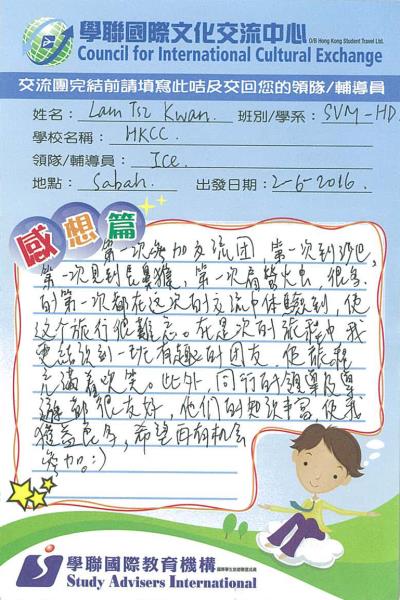 學聯國際文化交流中心
O/B Hong Kong Student Travel Ltd.
Council for International Cultural Exchange
交流團完結前請填寫此咭及交回您的領隊/輔導員
姓名: Lam Tsz Kwan. 班別/學系: SVM-HD
學校名稱: HKCC.
領隊/輔導員: Ice.
地點: Sabah. 出發日期: 2-6-2016.
感想篇
第一次參加交流团,第一次到沙巴,
第一次見到長鼻猴,第一次看螢火虫,很多
的第一次都在这次的交流中体驗到,使
这个旅行很難忘。在是次的旅程中我
更結識到一班有趣的团友,使旅程
充滿着欢笑。此外,同行的領導及導
遊都很友好,他们的知识丰富,使我
獲益良多,希望再有机会
參加。:)
學聯國際教育機構
Study Advisers International